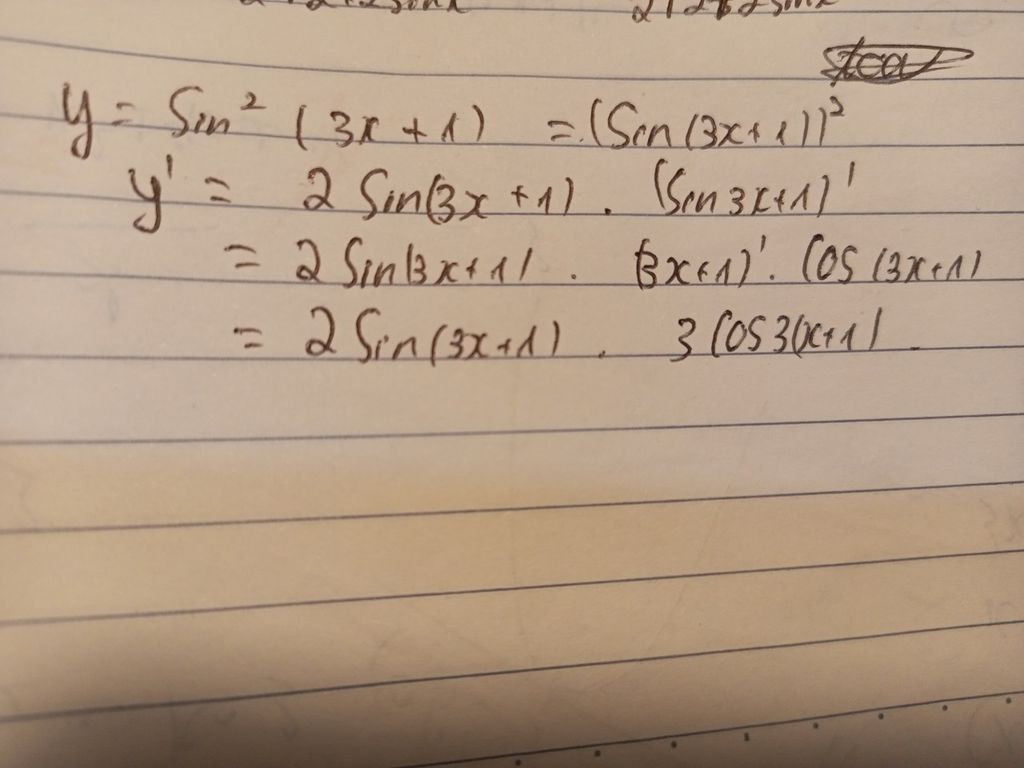 y = Sin² (3x + 1) = (Sin(3x+1))²
y' = 2 Sin(3x +1) . (Sin 3x+1)'
= 2 Sin(3x+1) . (3x+1)' . Cos (3x+1)
= 2 Sin(3x+1) . 3 Cos 3(x+1) .